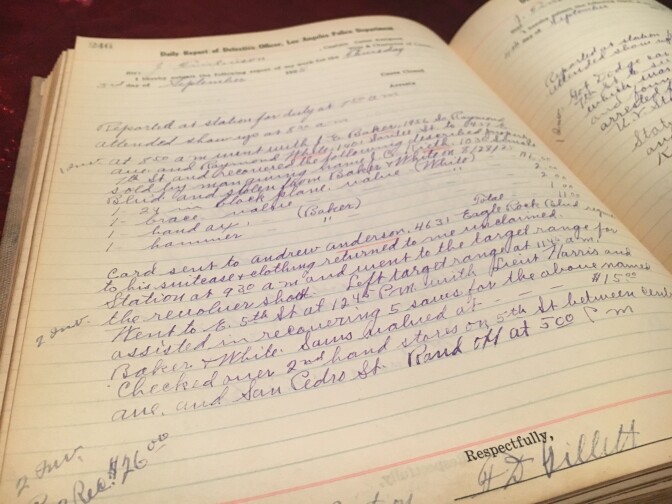 246
Daily Report of Detective Officer, Los Angeles Police Department
J. Finlinson
I hereby submit the following report of my work for the Thursday
3rd day of September
Cases Closed
Arrests
Reported at station for duty at 8 00 a m
attended show up at 8 a m
1 Inv. at 8 30 a m went with J. E. Baker, 1856 So Raymond
ave and Raymond White, 1401 Santee St to
7th St and recovered the following described property
sold by man giving name J. C. 1030 Stanford
Blvd and stolen from Baker & White on 8/28/25
1 - 24 in block plane value (White)
1 - brace value
1 - hand ax, " (Baker)
1 - hammer "
Total
Card sent to Andrew Anderson, 4631 Eagle Rock Blvd
to his suitcase & clothing returned to me unclaimed.
Station at 9 30 a m and went to the target range for
the revolver shoot. Left target range at 11 45 a.m.
2 Inv. Went to E. 5th St at 12 45 P M with Lieut Harris and
assisted in recovering 5 saws for the above named
Baker & White. Saws valued at - - - $15 00
Checked over 2nd hand stores on 5th St between Central
ave. and San Pedro St. Rang off at 5 00 P M
2 Inv.
Rec. $26 00
Respectfully,
H D Gillett
September
Reported at station
attended show up